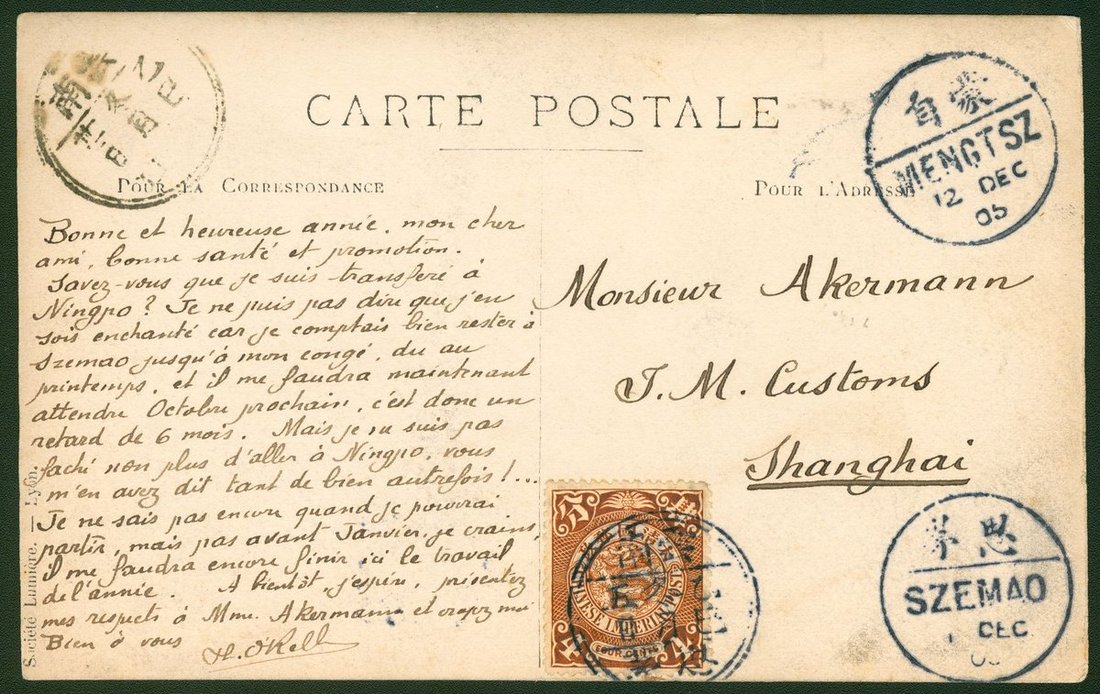 CARTE POSTALE
POUR LA CORRESPONDANCE
POUR L'ADRESSE
蒙自
MENGTSZ
12 DEC
05
Bonne et heureuse année, mon cher
ami, bonne santé et promotion.
Savez-vous que je suis transferé à
Ningpo? Je ne puis pas dire que j'en
sois enchanté car je comptais bien rester à
Szemao jusqu'à mon congé, du au
printemps, et il me faudra maintenant
attendre Octobre prochain, c'est donc un
retard de 6 mois. Mais je ne suis pas
faché non plus d'aller à Ningpo, vous
m'en avez dit tant de bien autrefois!...
Je ne sais pas encore quand je pourrai
partir, mais pas avant Janvier, je crains,
il me faudra encore finir ici le travail
de l'année. A bientôt j'espère, présentez
mes respects à Mme. Akermann et croyez moi
Bien à vous
Monsieur Akermann
I. M. Customs
Shanghai
Société Lumière. — Lyon.
CHINESE IMPERIAL POST
FOUR CENTS
4 4
思茅
SZEMAO
DEC